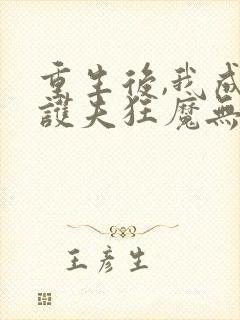 重生後,我成
護夫狂魔無
王彥生